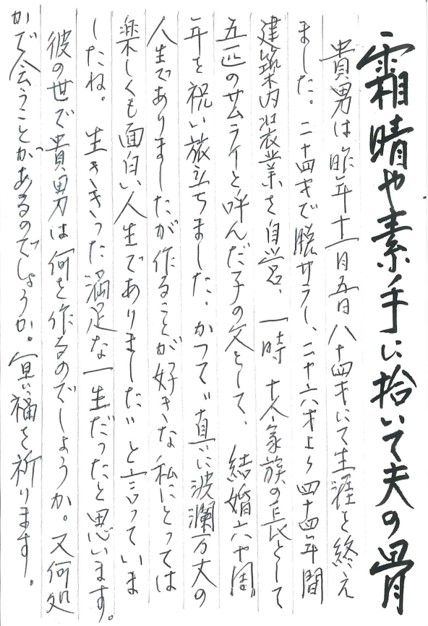 霜晴や素手に拾いて夫の骨
貴男は昨年十一月五日八十四才にて生涯を終え
ました。二十四才で脱サラし、二十六才より四十四年間
建築内装業を自営、一時十人家族の長として
五匹のサムライと呼んだ子の父として、結婚六十周
年を祝い旅立ちました。かつて〝真に波瀾万丈の
人生でありましたが作ることが好きな私にとっては
楽しくも面白い人生でありました〟と言っていま
したね。生ききった満足な一生だったと思います。
彼の世で貴男は何を作るのでしょうか。又何処
かで会うことがあるのでしょうか。冥福を祈ります。